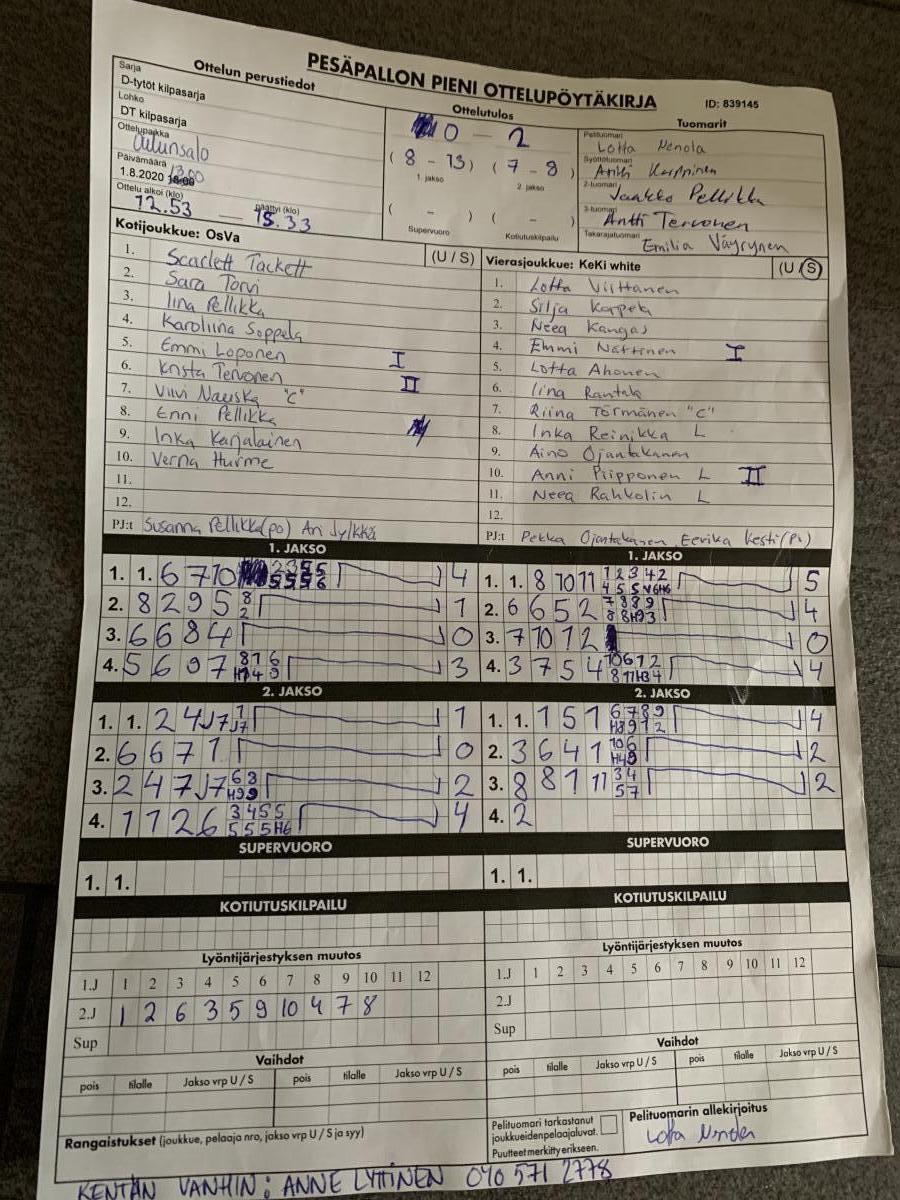 PESÄPALLON PIENI OTTELUPÖYTÄKIRJA
ID: 839145
Ottelun perustiedot
Sarja
D-tytöt kilpasarja
Lohko
DT kilpasarja
Ottelupaikka
Oulunsalo
Päivämäärä
1.8.2020 13.00
Ottelu alkoi (klo) päättyi (klo)
12.53 — 15.33
Ottelutulos
0 - 2
( 8 - 13 ) ( 7 - 8 )
1. jakso 2. jakso
( - ) ( - )
Supervuoro Kotiutuskilpailu
Tuomarit
Pelituomari
Lotta Nenola
Syöttötuomari
Antti Karppinen
2-tuomari
Jaakko Pellikka
3-tuomari
Antti Tervonen
Takarajatuomari
Emilia Väyrynen
Kotijoukkue: OsVa (U / S)
1. Scarlett Tackett
2. Sara Torvi
3. Iina Pellikka
4. Karoliina Soppela
5. Emmi Loponen I
6. Krista Tervonen II
7. Viivi Nauska "C"
8. Enni Pellikka
9. Inka Karjalainen
10. Verna Hurme
11.
12.
PJ:t Susanna Pellikka(po) Ari Jylkkä
Vierasjoukkue: KeKi white (U / S)
1. Lotta Viittanen
2. Silja Karpela
3. Neea Kangas
4. Emmi Nättinen I
5. Lotta Ahonen
6. Iina Rantala
7. Riina Törmänen "C"
8. Inka Reinikka L
9. Aino Ojantakanen
10. Anni Piipponen L II
11. Neea Rahkolin L
12.
PJ:t Pekka Ojantakanen Eerika Kesti(Pv)
1. JAKSO
1. 1. 6 7 10 4
2. 8 2 9 5 8 2 1
3. 6 6 8 4 0
4. 5 6 9 7 3
1. JAKSO
1. 1. 8 10 11 5
2. 6 6 5 2 4
3. 7 10 1 2 0
4. 3 7 5 4 4
2. JAKSO
1. 1. 2 4 J7 1 J7 1
2. 6 6 7 1 0
3. 2 4 7 J7 63 H99 2
4. 1 1 2 6 3455 555H6 4
2. JAKSO
1. 1. 1 5 1 6789 4
2. 3 6 4 1 106 H49 2
3. 8 8 1 11 34 57 2
4. 2
SUPERVUORO
1. 1.
SUPERVUORO
1. 1.
KOTIUTUSKILPAILU
KOTIUTUSKILPAILU
Lyöntijärjestyksen muutos
1.J 1 2 3 4 5 6 7 8 9 10 11 12
2.J 1 2 6 3 5 9 10 4 7 8
Sup
Lyöntijärjestyksen muutos
1.J 1 2 3 4 5 6 7 8 9 10 11 12
2.J
Sup
Vaihdot
pois tilalle Jakso vrp U / S pois tilalle Jakso vrp U / S
Vaihdot
pois tilalle Jakso vrp U / S pois tilalle Jakso vrp U / S
Rangaistukset (joukkue, pelaaja nro, jakso vrp U / S ja syy)
Pelituomari tarkastanut
joukkueidenpelaajaluvat.
Puutteet merkitty erikseen.
Pelituomarin allekirjoitus
Lotta Nenola
KENTÄN VANHIN: ANNE LYTINEN 040 571 2778